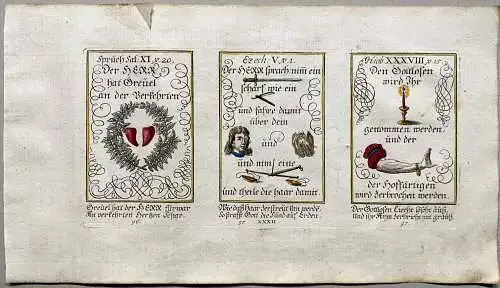 Sprüch Sal. XI. v. 20.
Der HERR
hat Greüel
an der Verkehrten
Greüel hat der HERR fürwar
An verkehrten Hertzen
Ezech. V. v. 1.
Der HERR sprach nim ein
scharf wie ein
und fahre damit
über dein
und
und nim eine
und theile die haar damit.
Wie daß haar
So strafft Gott die Sünd auf Erden.
XXXII
Hiob XXXVIII. v. 15.
Den Gottlosen
wird Ihr
genommen werden
und der
der Hoffärtigen
wird zerbrochen werden.
Der Gottlosen
und ihr Arm